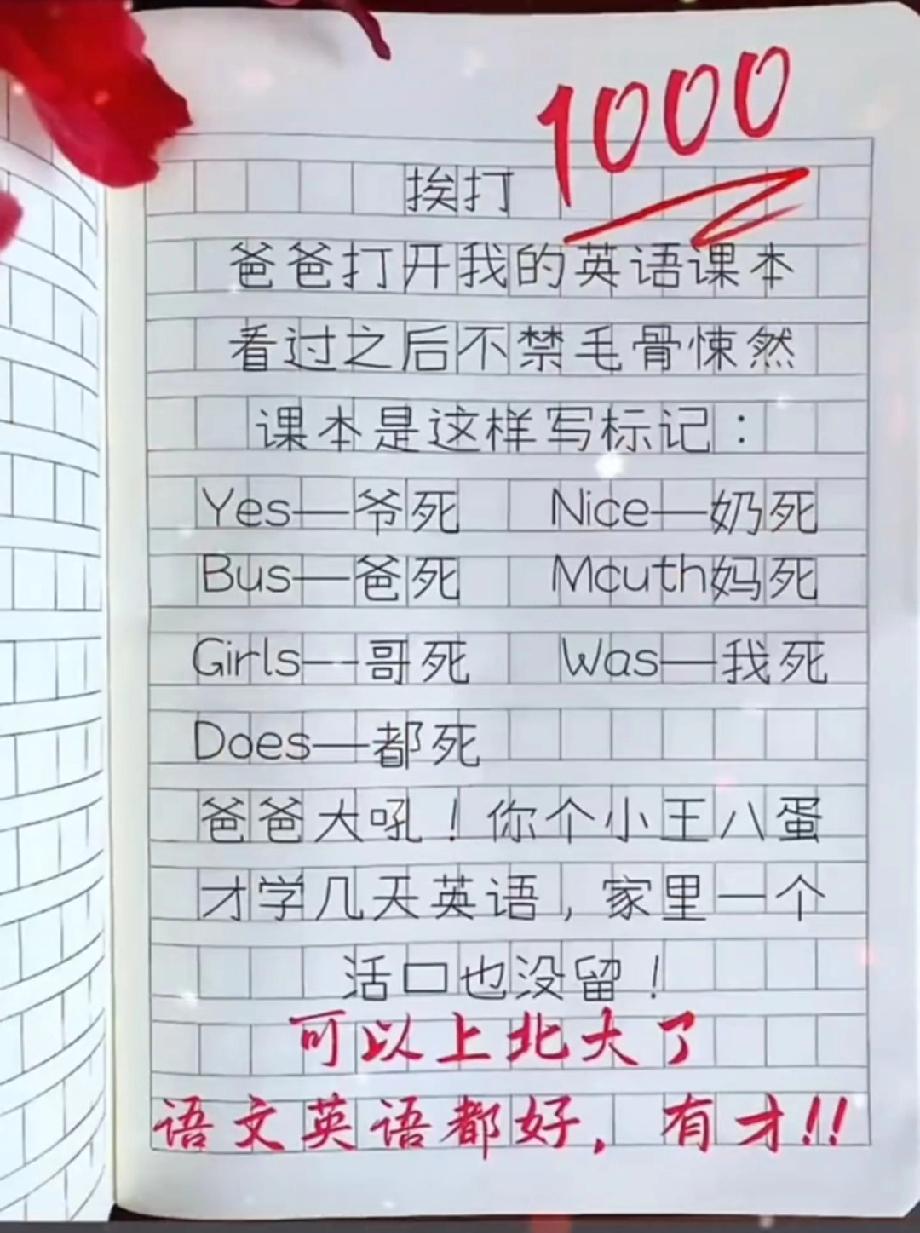 1000
挨打
爸爸打开我的英语课本
看过之后不禁毛骨悚然
课本是这样写标记：
Yes—爷死 Nice—奶死
Bus—爸死 Mouth妈死
Girls—哥死 Was—我死
Does—都死
爸爸大吼！你个小王八蛋
才学几天英语，家里一个
活口也没留！
可以上北大了
语文英语都好，有才!!